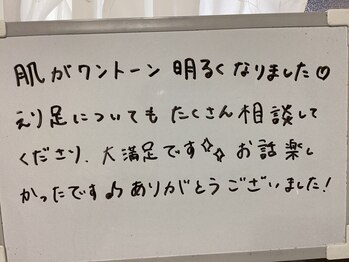 肌がワントーン 明るくなりました♡
えり足についても たくさん相談して
くださり、大満足です✧✧ お話楽し
かったです♪ ありがとうございました!